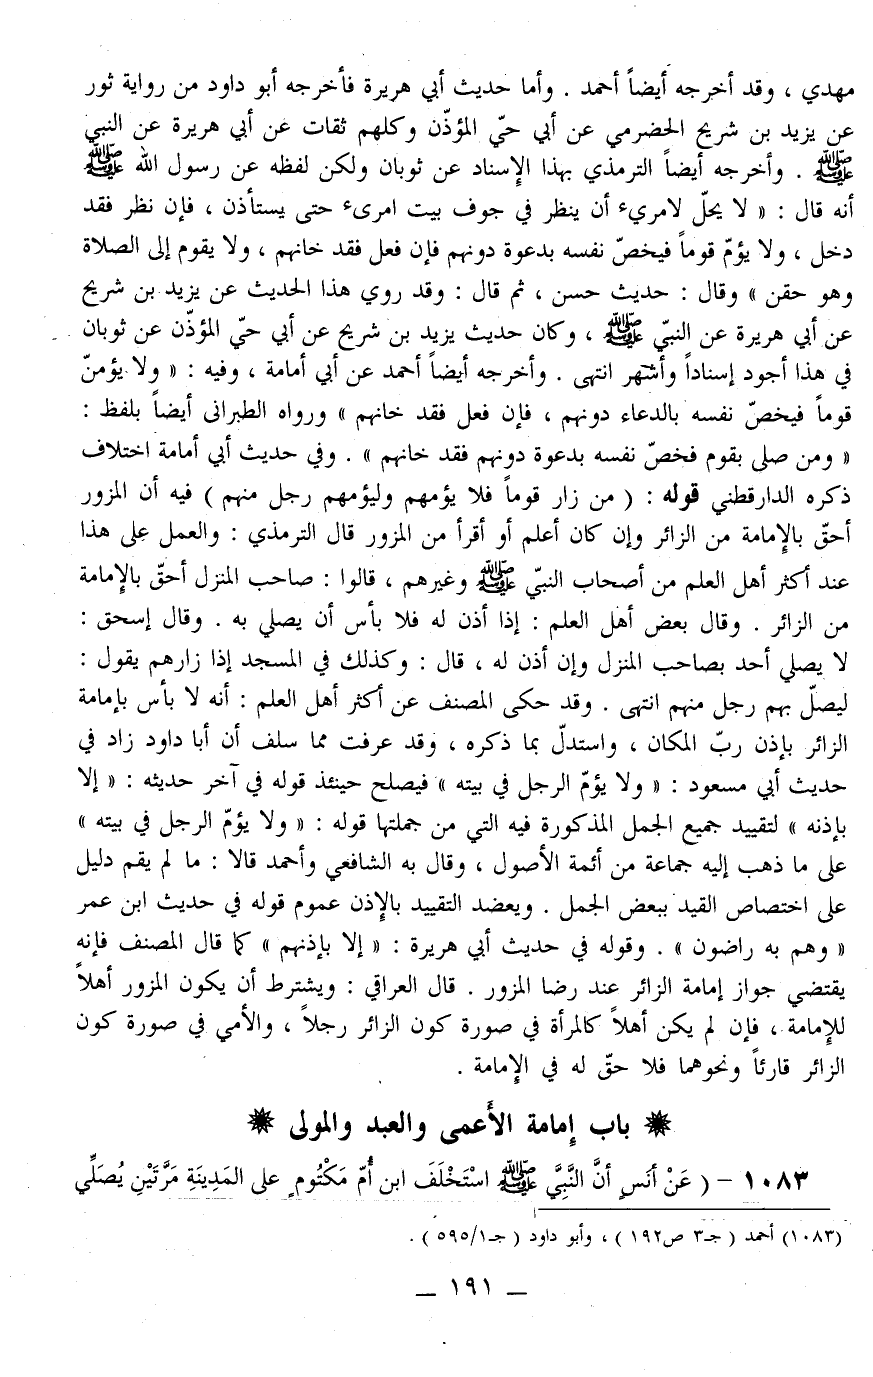 مهدي ، وقد أخرجه أيضاً أحمد . وأما حديث أبي هريرة فأخرجه أبو داود من رواية ثور
عن يزيد بن شريح الحضرمي عن أبي حيّ المؤذّن وكلهم ثقات عن أبي هريرة عن النبي
ﷺ . وأخرجه أيضاً الترمذي بهذا الإسناد عن ثوبان ولكن لفظه عن رسول الله ﷺ
أنه قال : « لا يحلّ لامريء أن ينظر في جوف بيت امرىء حتى يستأذن ، فإن نظر فقد
دخل ، ولا يؤمّ قوماً فيخصّ نفسه بدعوة دونهم فإن فعل فقد خانهم ، ولا يقوم إلى الصلاة
وهو حقن » وقال : حديث حسن ، ثم قال : وقد روي هذا الحديث عن يزيد بن شريح
عن أبي هريرة عن النبيّ ﷺ ، وكان حديث يزيد بن شريح عن أبي حيّ المؤذّن عن ثوبان
في هذا أجود إسناداً وأشهر انتهى . وأخرجه أيضاً أحمد عن أبي أمامة ، وفيه : « ولا يؤمنّ
قوماً فيخصّ نفسه بالدعاء دونهم ، فإن فعل فقد خانهم » ورواه الطبرانى أيضاً بلفظ :
« ومن صلى بقوم فخصّ نفسه بدعوة دونهم فقد خانهم » . وفي حديث أبي أمامة اختلاف
ذكره الدارقطني قوله : ( من زار قوماً فلا يؤمهم وليؤمهم رجل منهم ) فيه أن المزور
أحقّ بالإمامة من الزائر وإن كان أعلم أو أقرأ من المزور قال الترمذي : والعمل على هذا
عند أكثر أهل العلم من أصحاب النبيّ ﷺ وغيرهم ، قالوا : صاحب المنزل أحقّ بالإمامة
من الزائر . وقال بعض أهل العلم : إذا أذن له فلا بأس أن يصلي به . وقال إسحق :
لا يصلي أحد بصاحب المنزل وإن أذن له ، قال : وكذلك في المسجد إذا زارهم يقول :
ليصلّ بهم رجل منهم انتهى . وقد حكى المصنف عن أكثر أهل العلم : أنه لا بأس بإمامة
الزائر بإذن ربّ المكان ، واستدلّ بما ذكره ، وقد عرفت مما سلف أن أبا داود زاد في
حديث أبي مسعود : « ولا يؤمّ الرجل في بيته » فيصلح حينئذ قوله في آخر حديثه : « إلا
بإذنه » لتقييد جميع الجمل المذكورة فيه التي من جملتها قوله : « ولا يؤمّ الرجل في بيته »
على ما ذهب إليه جماعة من أئمة الأصول ، وقال به الشافعي وأحمد قالا : ما لم يقم دليل
على اختصاص القيد ببعض الجمل . ويعضد التقييد بالإذن عموم قوله في حديث ابن عمر
« وهم به راضون » . وقوله في حديث أبي هريرة : « إلا بإذنهم » كما قال المصنف فإنه
يقتضي جواز إمامة الزائر عند رضا المزور . قال العراقي : ويشترط أن يكون المزور أهلاً
للإمامة ، فإن لم يكن أهلاً كالمرأة في صورة كون الزائر رجلاً ، والأمي في صورة كون
الزائر قارئاً ونحوهما فلا حقّ له في الإمامة .
باب إمامة الأعمى والعبد والمولى
١٠٨٣ – ( عَنْ أَنَسٍ أَنَّ النَّبِيَّ ﷺ اسْتَخْلَفَ ابن أُمّ مَكْتُومٍ على المَدِينَةِ مَرَّتَيْنِ يُصَلِّي
(١٠٨٣) أحمد ( جـ٣ ص١٩٢ ) ، وأبو داود ( جـ١/٥٩٥ ) .
— ١٩١ —